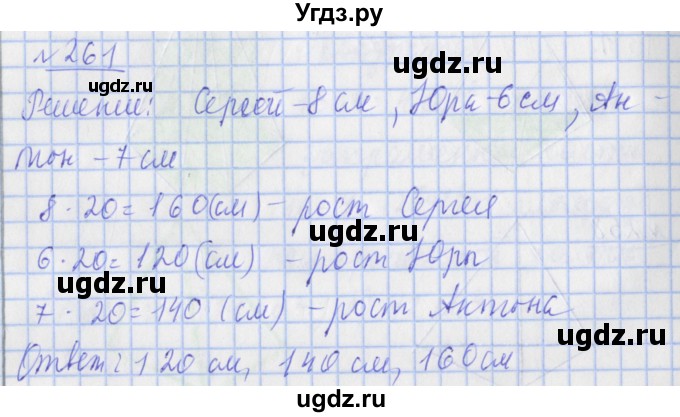 Угдз.ру
№ 261
Решение: Сергей - 8 см, Юра - 6 см, Ан -
тон - 7 см
8 · 20 = 160 (см) - рост Сергея
6 · 20 = 120 (см) - рост Юры
7 · 20 = 140 (см) - рост Антона
Ответ: 120 см, 140 см, 160 см
ugdz.ru
ugdz.ru
ugdz.ru
ugdz.ru
ugdz.ru
ugdz.ru
ugdz.ru
ugdz.ru